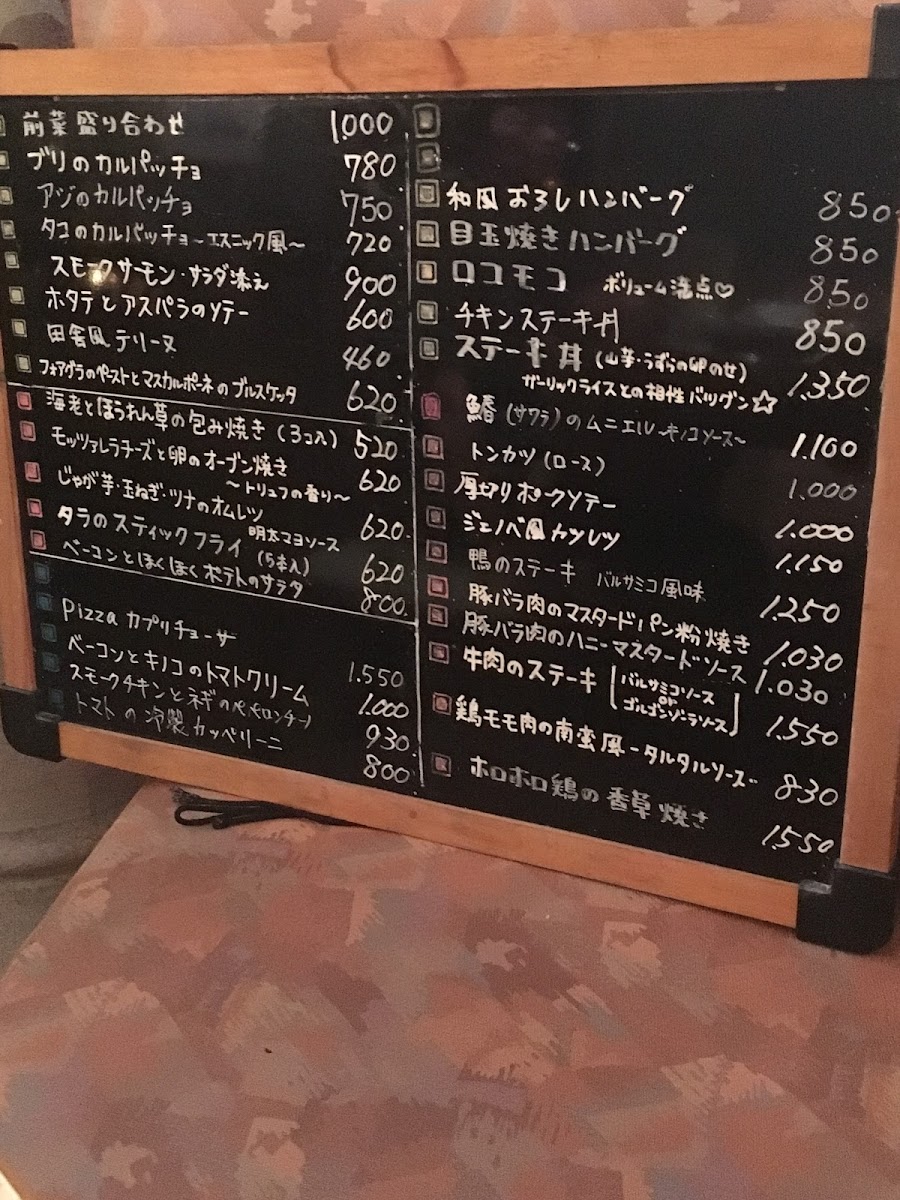 前菜盛り合わせ 1.000
ブリのカルパッチョ 780
アジのカルパッチョ 750
タコのカルパッチョ~エスニック風~ 720
スモークサーモン・サラダ添え 900
ホタテとアスパラのソテー 600
田舎風テリーヌ 460
フォアグラのペーストとマスカルポーネのブルスケッタ 620
海老とほうれん草の包み焼き(3コ入) 520
モッツァレラチーズと卵のオーブン焼き
~トリュフの香り~ 620
じゃが芋・玉ねぎ・ツナのオムレツ 620
明太マヨソース
タラのスティックフライ(5本入) 620
ベーコンとほくほくポテトのサラダ 800
Pizza カプリチョーザ 1.550
ベーコンとキノコのトマトクリーム 1.000
スモークチキンとネギのペペロンチーノ 930
トマトの冷製カッペリーニ 800
和風おろしハンバーグ 850
目玉焼きハンバーグ 850
ロコモコ ボリューム満点♡ 850
チキンステーキ丼 850
ステーキ丼(山芋・うずらの卵のせ) 1.350
ガーリックライスとの相性バツグン☆
鰆(サワラ)のムニエル~キノコソース~ 1.100
トンカツ(ロース) 1.000
厚切りポークソテー 1.000
ジェノベ風カツレツ 1.150
鴨のステーキ バルサミコ風味 1.250
豚バラ肉のマスタードパン粉焼き 1.030
豚バラ肉のハニーマスタードソース 1.030
牛肉のステーキ[バルサミコソース or ゴルゴンゾーラソース] 1.550
鶏モモ肉の南蛮風-タルタルソース 830
ホロホロ鶏の香草焼き 1.550